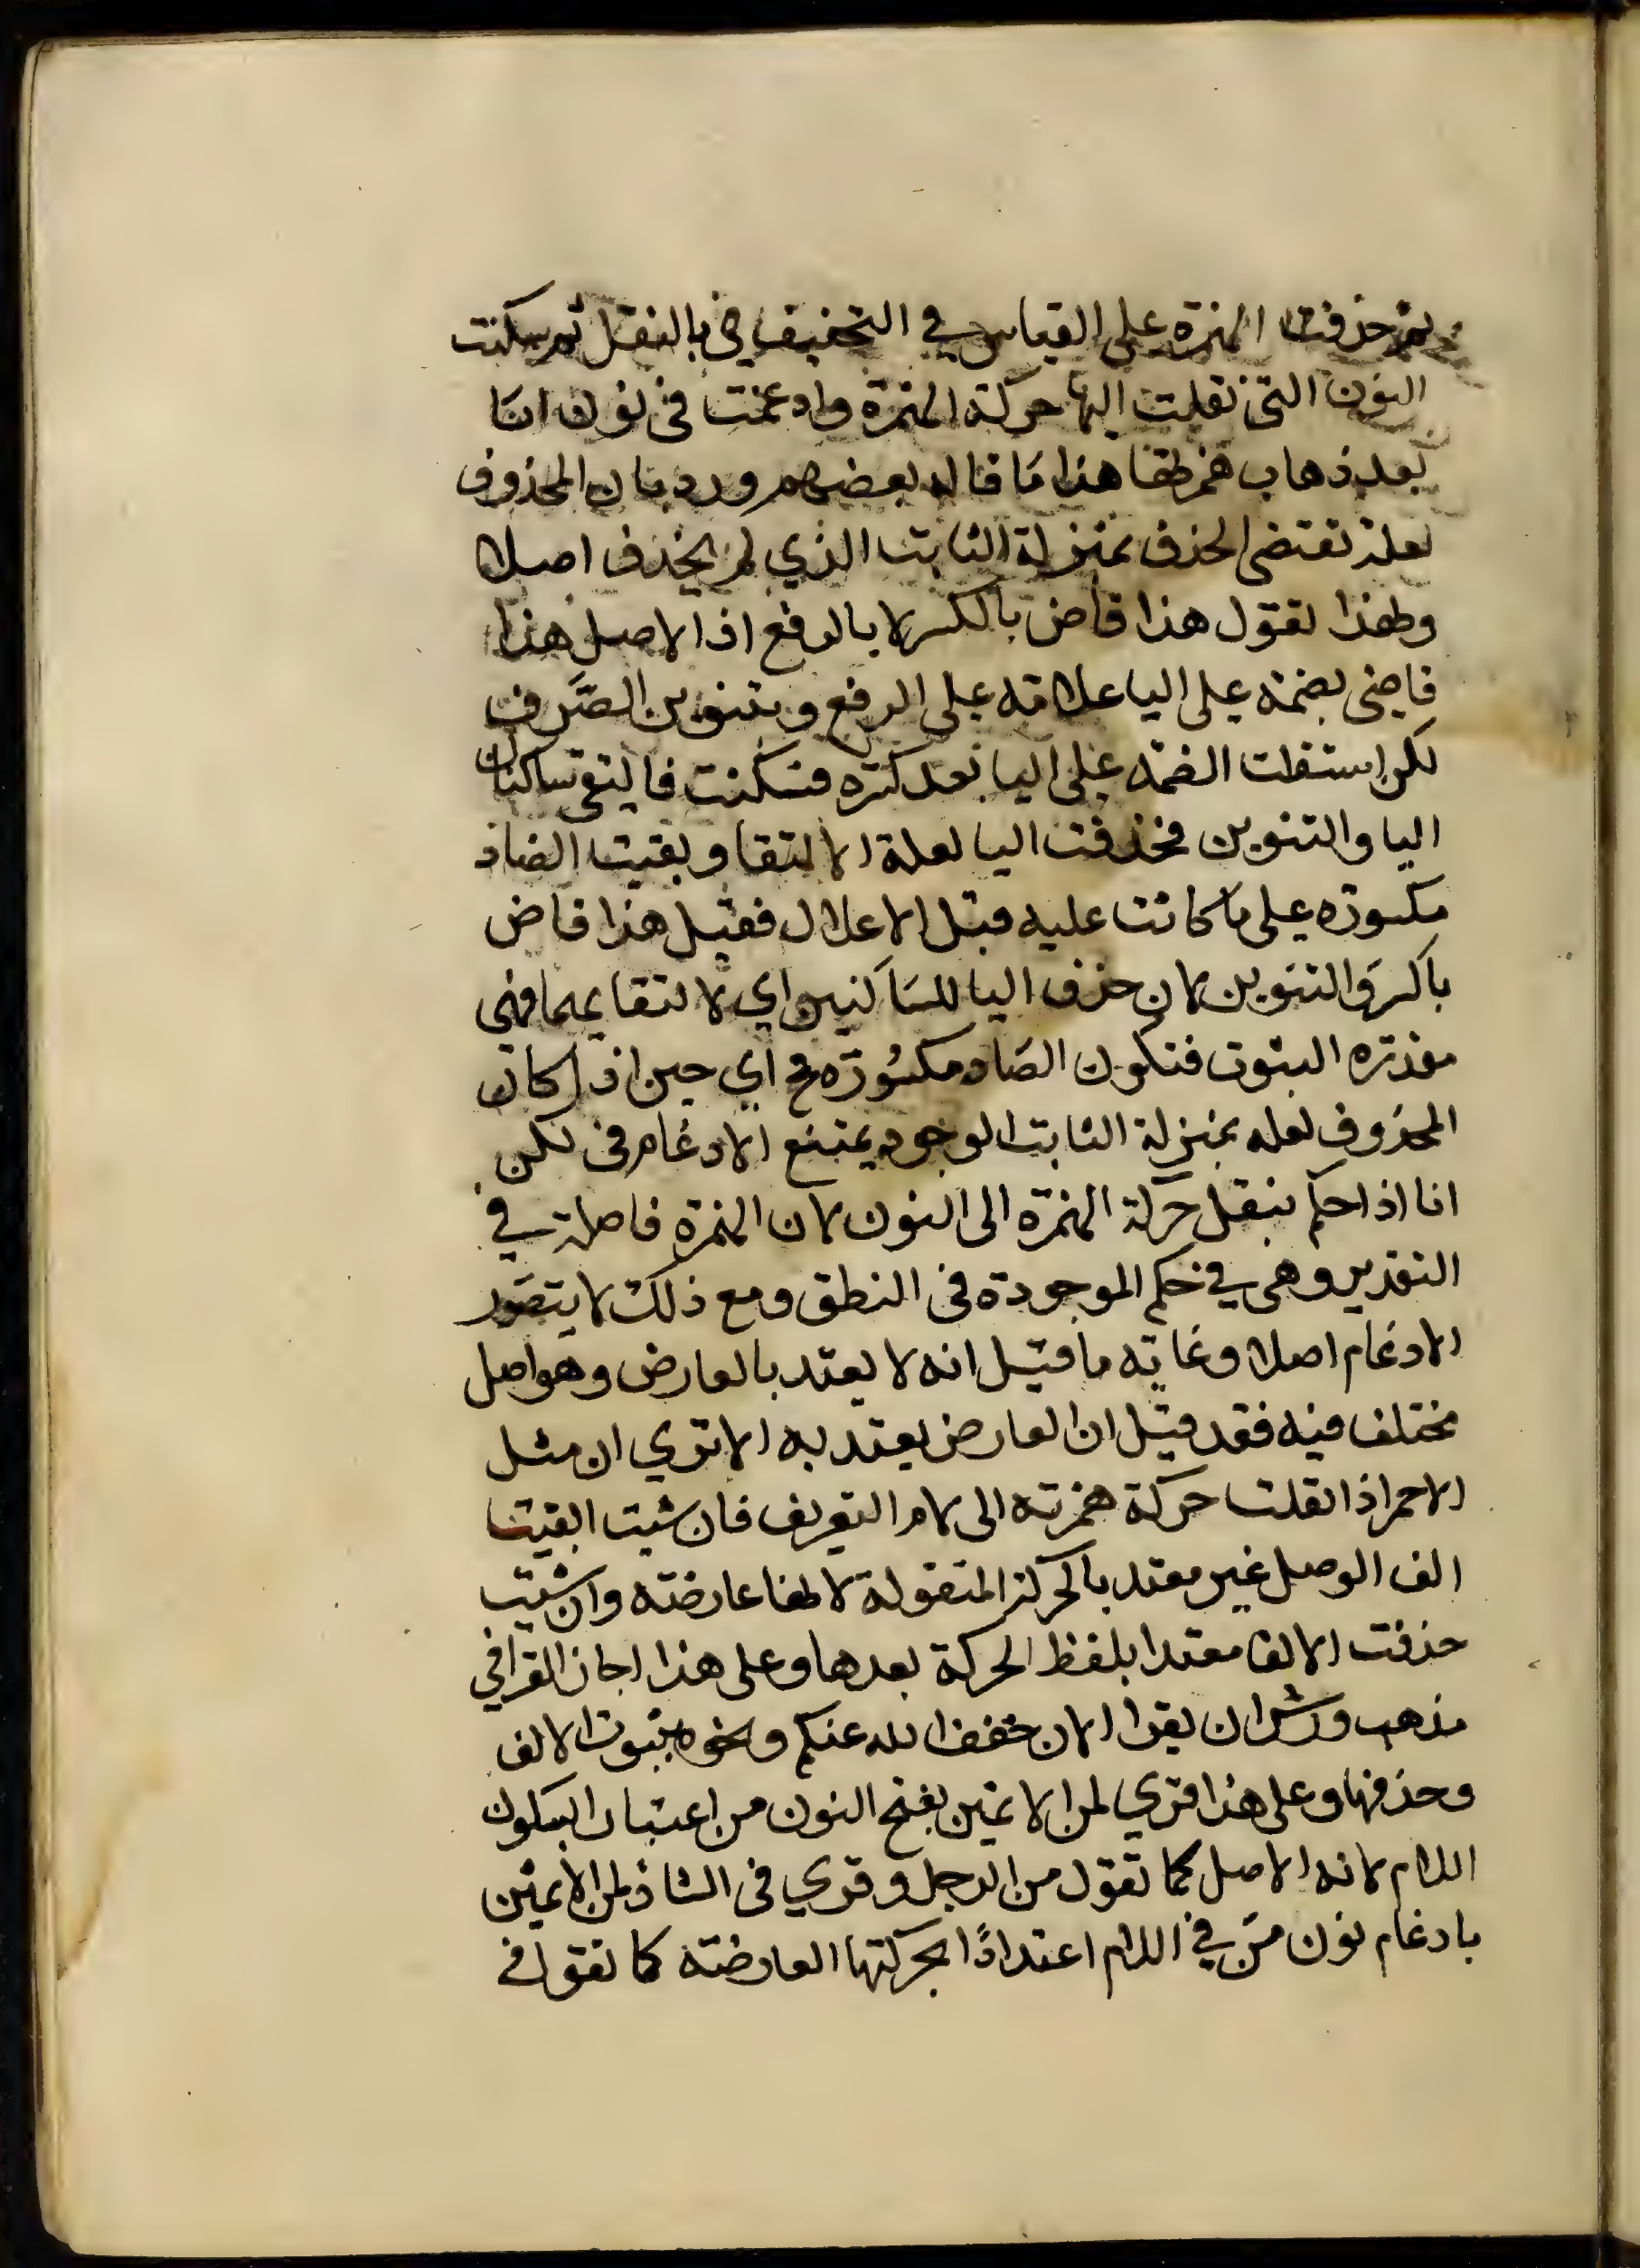 ثم حذفت الهمزة على القياس في التخفيف في بالنقل ثم سكنت
النون التي نقلت اليها حركة الهمزة وادغمت في نون انا
بعد ذهاب همزطها هذا ما قاله بعضهم ورد بان المحذوف
لعلة تقتضى الحذف بمنزلة الثابت الذي لم يحذف اصلا
ولهذا تقول هذا قاض بالكسر لا بالرفع اذ الاصل هذا
قاضى بضمة على اليا علامه على الرفع وبتنوين الصرف
لكن استثقلت الضمه على اليا بعد كسره فسكنت فالتقى ساكنان
اليا والتنوين فحذفت اليا لعلة الالتقا وبقيت الضاد
مكسوره على ما كانت عليه قبل الاعلال فقيل هذا قاض
بالكسر والتنوين لان حذف اليا للساكنين اي لالتقايهما فهى
مقدره الثبوت فتكون الضاد مكسوره ح اي حين اذ كان
المحذوف لعله بمنزلة الثابت الوجود يمتنع الادغام في لكن
انا اذا حكم بنقل حركة الهمزة الى النون لان الهمزة فاصلة في
التقدير وهى في حكم الموجودة في النطق ومع ذلك لا يتصور
الادغام اصلا وغايته ما قيل انه لا يعتد بالعارض وهو اصل
مختلف فيه فقد قيل ان العارض يعتد به الا تري ان مثل
الاحمر اذا نقلت حركة همزته الى لام التعريف فان شيت ابقيت
الف الوصل غير معتد بالحركة المنقولة لانها عارضه وان شيت
حذفت الالف معتدا بلفظ الحركة بعدها وعلى هذا اجاز القرا في
مذهب ورش ان يقرا الان خفف الله عنكم ونحوه بثبوت الالف
وحذفها وعلى هذا قري لمن الاثمين بفتح النون من اعتبارا بسكون
اللام لانه الاصل كما تقول من الرجل وقري في الشاذ لمن الاثمين
بادغام نون من في اللام اعتدادًا بحركتها العارضه كما تقول في